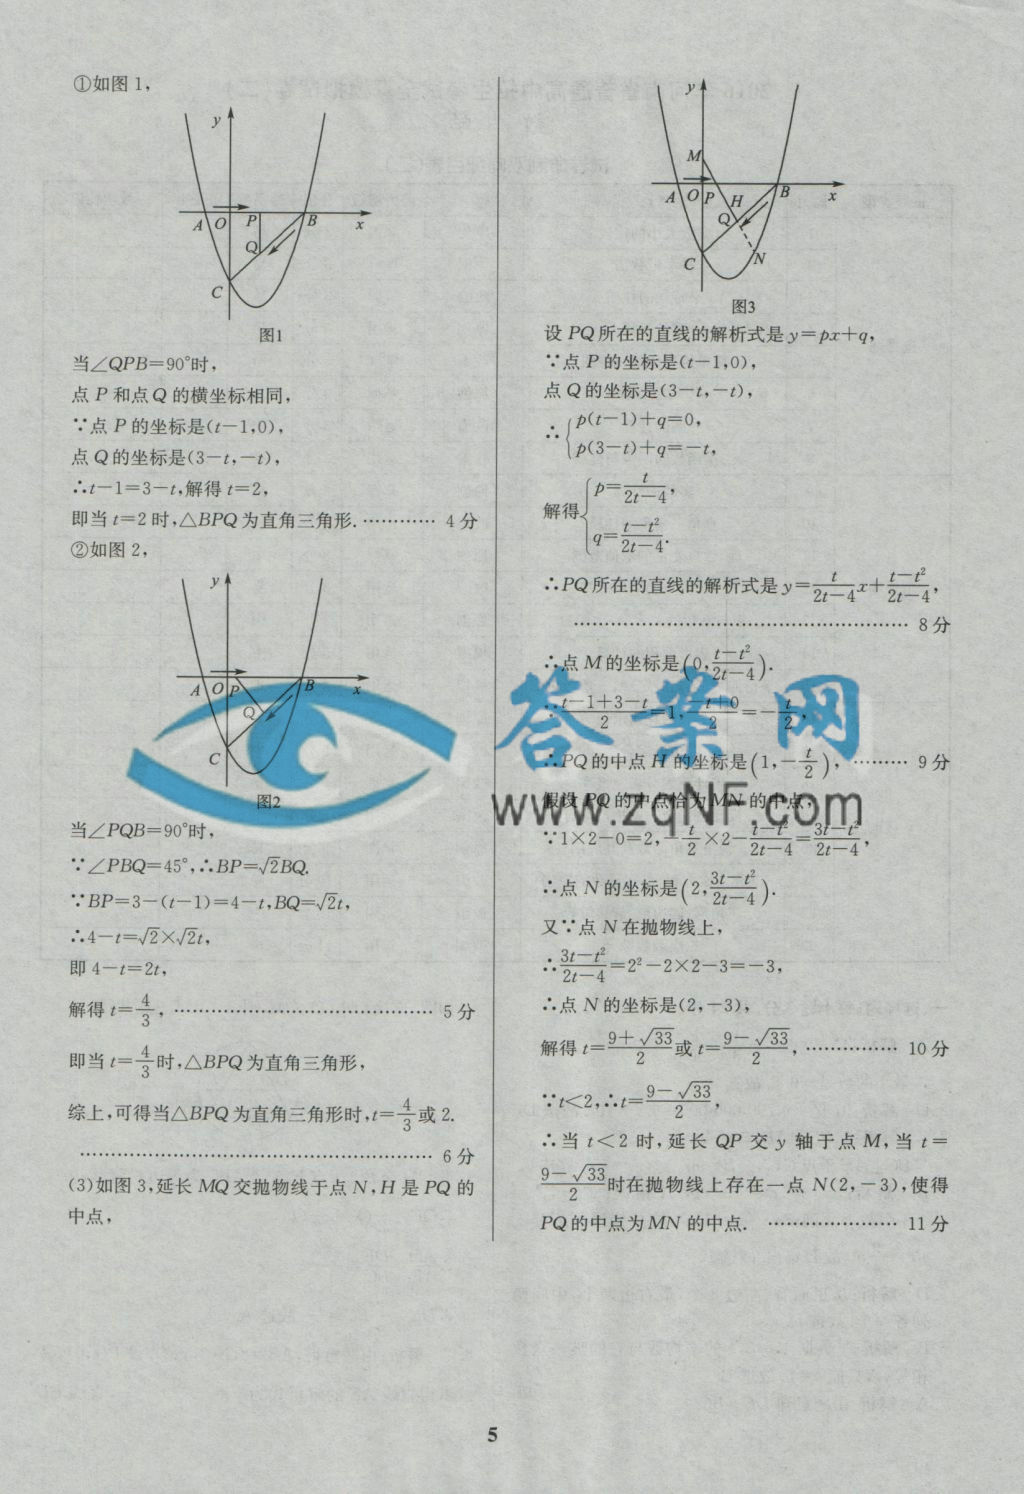 ①如图1,
y
A O P B x
Q
C
图1
当∠QPB=90°时,
点 P 和点 Q 的横坐标相同,
∵点 P 的坐标是(t-1,0),
点 Q 的坐标是(3-t,-t),
∴t-1=3-t,解得 t=2,
即当 t=2 时,△BPQ 为直角三角形. ………… 4分
②如图2,
y
A O P B x
Q
C
图2
当∠PQB=90°时,
∵∠PBQ=45°,∴BP=√2BQ.
∵BP=3-(t-1)=4-t,BQ=√2t,
∴4-t=√2×√2t,
即 4-t=2t,
解得 t=4/3, …………………………………… 5分
即当 t=4/3 时,△BPQ 为直角三角形,
综上,可得当△BPQ 为直角三角形时,t=4/3 或 2.
………………………………………………… 6分
(3)如图3,延长 MQ 交抛物线于点 N,H 是 PQ 的
中点,
y
M
A O P H B x
Q
C N
图3
设 PQ 所在的直线的解析式是 y=px+q,
∵点 P 的坐标是(t-1,0),
点 Q 的坐标是(3-t,-t),
∴{p(t-1)+q=0,
p(3-t)+q=-t,
解得{p=t/(2t-4),
q=(t-t²)/(2t-4).
∴PQ 所在的直线的解析式是 y=t/(2t-4)x+(t-t²)/(2t-4),
……………………………………………… 8分
∴点 M 的坐标是(0,(t-t²)/(2t-4)).
∵(t-1+3-t)/2=1,(-t+0)/2=-t/2,
∴PQ 的中点 H 的坐标是(1,-t/2), ……… 9分
假设 PQ 的中点恰为 MN 的中点,
∵1×2-0=2,-t/2×2-(t-t²)/(2t-4)=(3t-t²)/(2t-4),
∴点 N 的坐标是(2,(3t-t²)/(2t-4)).
又∵点 N 在抛物线上,
∴(3t-t²)/(2t-4)=2²-2×2-3=-3,
∴点 N 的坐标是(2,-3),
解得 t=(9+√33)/2 或 t=(9-√33)/2, …………… 10分
∵t<2,∴t=(9-√33)/2,
∴当 t<2 时,延长 QP 交 y 轴于点 M,当 t=
(9-√33)/2 时在抛物线上存在一点 N(2,-3),使得
PQ 的中点为 MN 的中点. ………………… 11分
答案网
www.zqNF.com
5